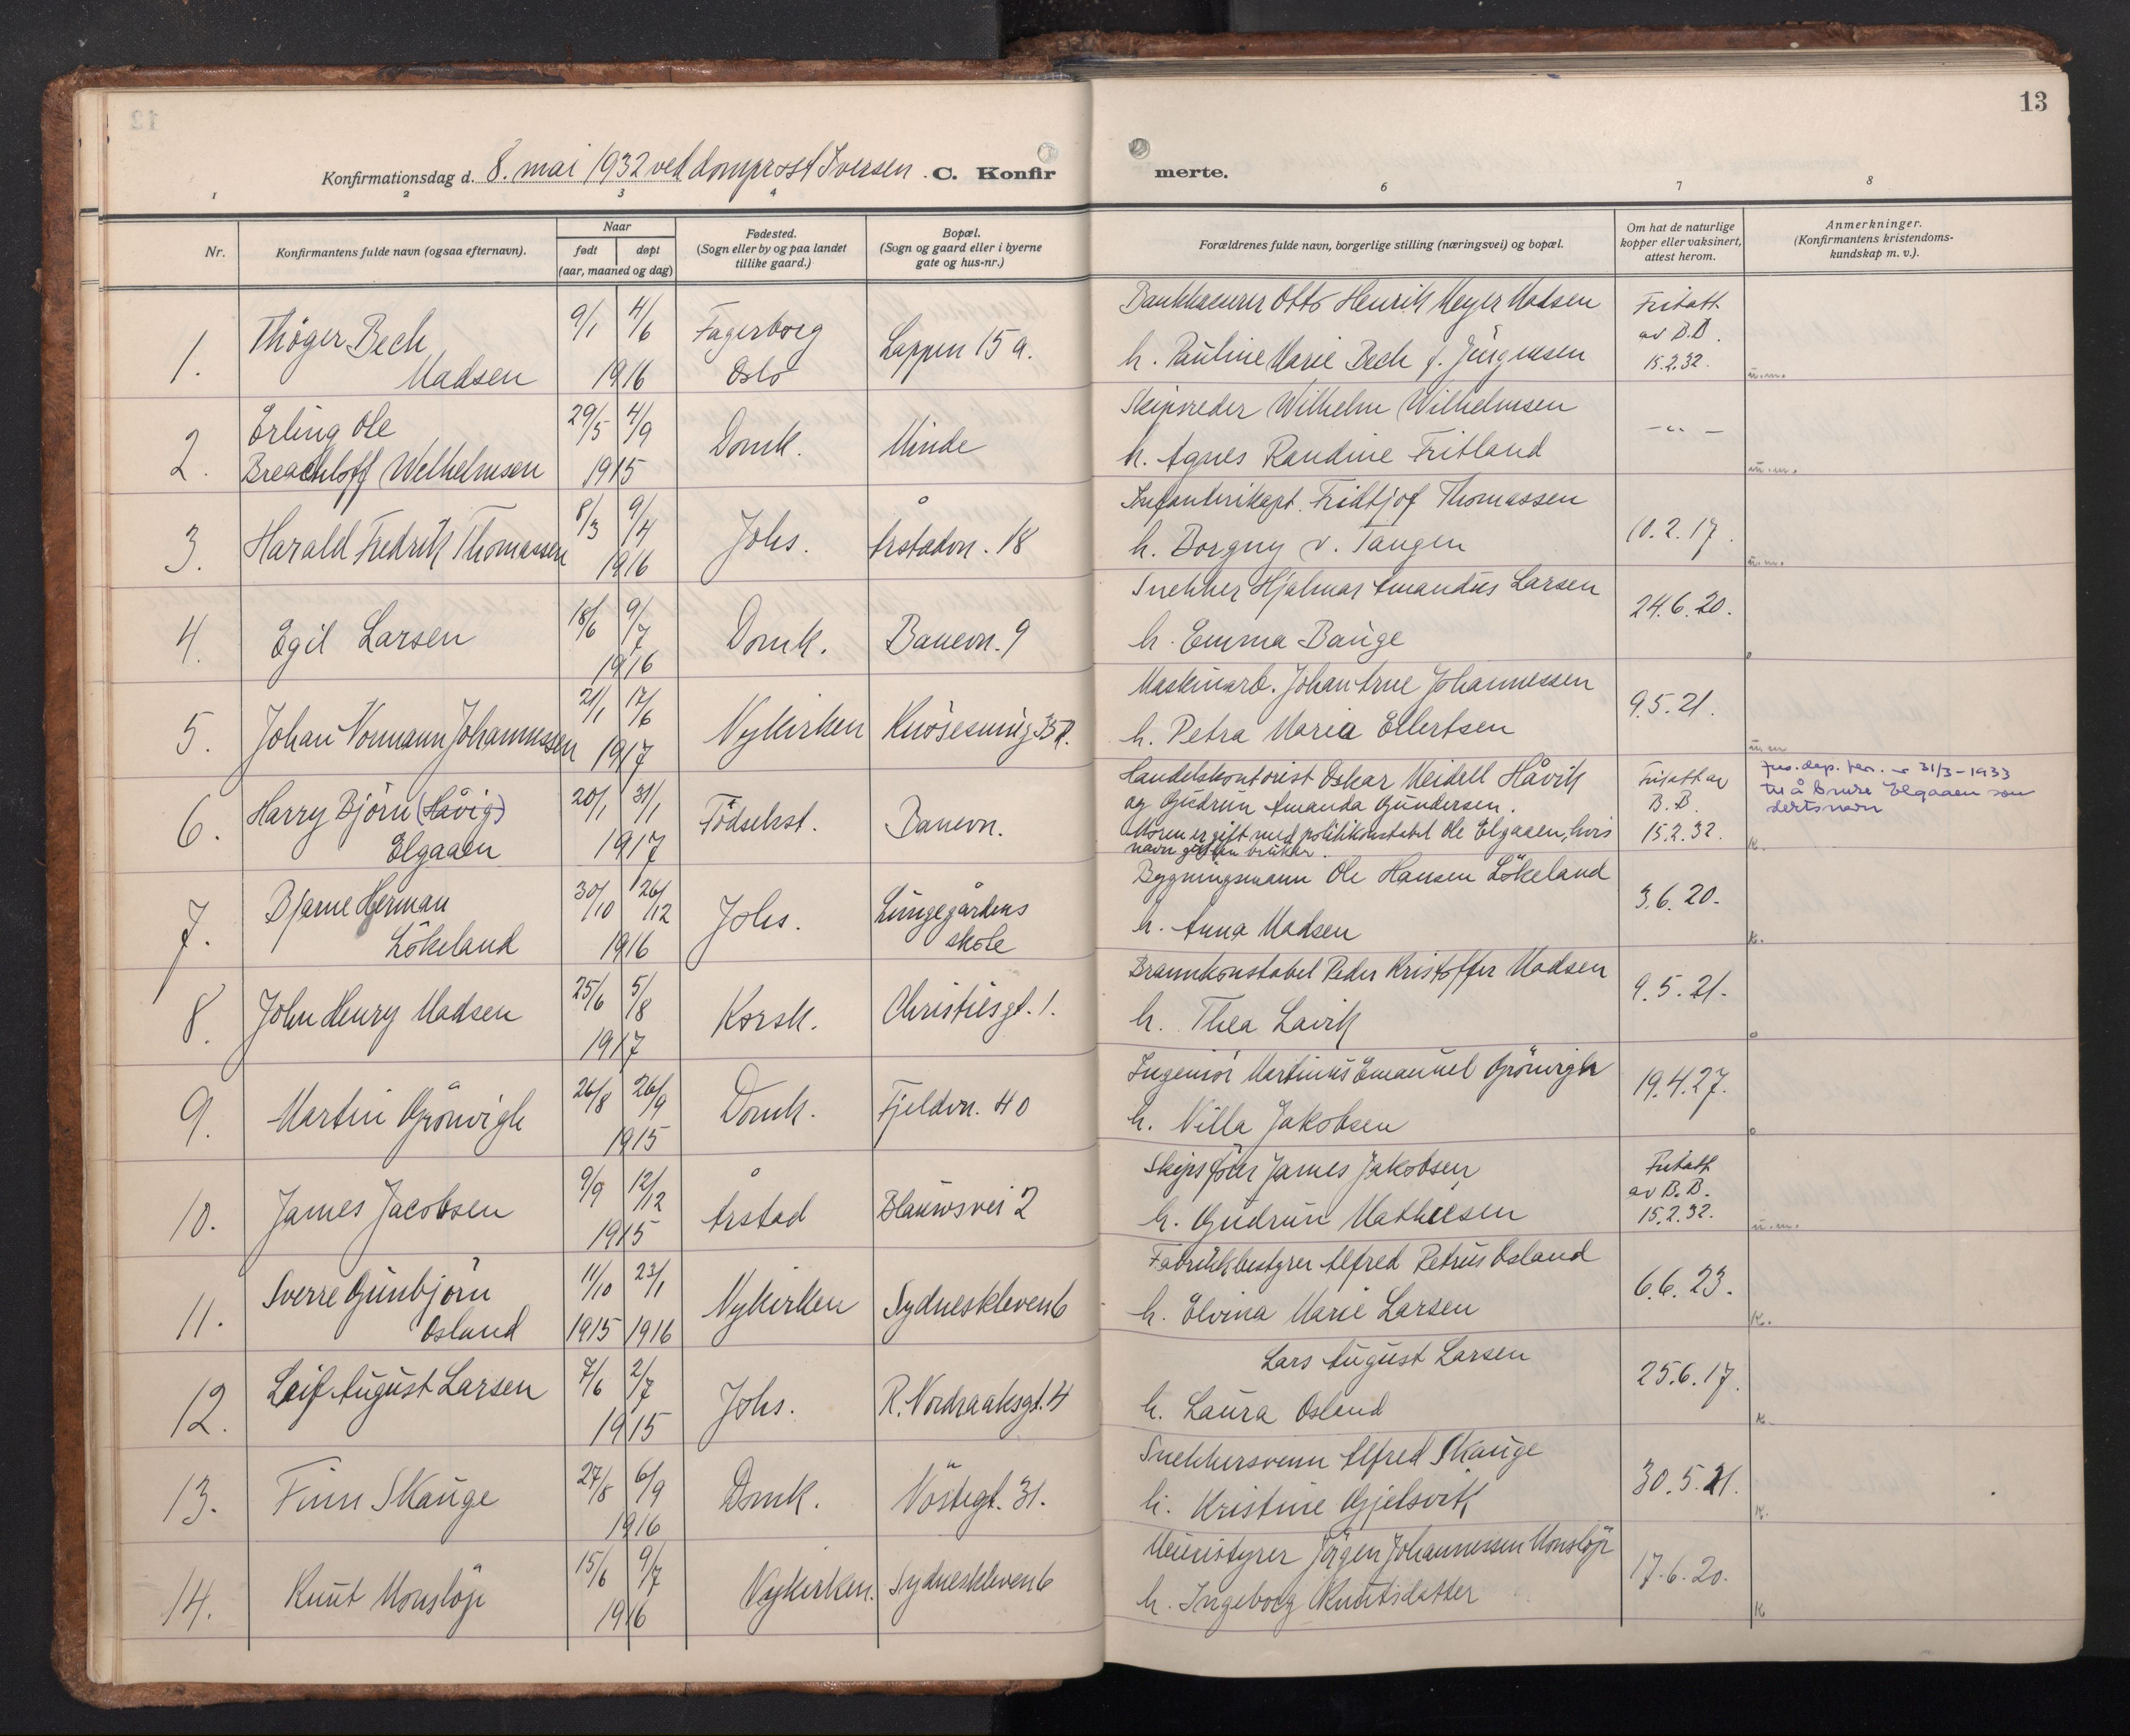 13
Konfirmationsdag d. 8. mai 1932 ved domprost Iversen. C. Konfirmerte.
1 2 3 4 6 7 8
Nr.
Konfirmantens fulde navn (ogsaa efternavn).
Naar
født døpt
(aar, maaned og dag)
Fødested.
(Sogn eller by og paa landet
tillike gaard.)
Bopæl.
(Sogn og gaard eller i byerne
gate og hus-nr.)
Forældrenes fulde navn, borgerlige stilling (næringsvei) og bopæl.
Om hat de naturlige
kopper eller vaksinert,
attest herom.
Anmerkninger.
(Konfirmantens kristendoms-
kundskap m. v.).
1. Thöger Bech Madsen 9/1 4/6 1916 Fagerborg Oslo Lappen 15 a.
Bankkaserer Otto Henrik Meyer Madsen
h. Pauline Marie Bech f. Jürgensen
Fritatt
av B.B.
15.2.32.
u.m.
2. Erling Ole
Wilhelmsen 29/5 4/9 1915 Domk. Minde
Skipsreder Wilhelm Wilhelmsen
h. Agnes Randine Fritland
— " —
u.m.
3. Harald Fredrik Thomassen 8/3 9/4 1916 Johs. Årstadvn. 18
Infanterikapt. Fridtjof Thomassen
h. Borgny v. Tangen
10.2.17.
u.m.
4. Egil Larsen 18/6 9/7 1916 Domk. Banevn. 9
Snekker Hjalmar Amandus Larsen
h. Emma Bauge
24.6.20.
5. Johan Normann Johannessen 21/1 17/6 1917 Nykirken Knösesmug 35
Maskinarb. Johan Arne Johannessen
h. Petra Maria Ellertsen
9.5.21.
u.m
6. Harry Björn (Håvig)
Elgaaen 20/1 31/1 1917 Födselsst. Banevn.
Handelskontorist Oskar Meidell Håvik
og Gudrun Amanda Gundersen.
Moren er gift med politikonstabel Ole Elgaaen, hvis
navn gutten bruker.
Fritatt av
B.B.
15.2.32.
Jus. dep. 31/3-1933
til å bruke Elgaaen som
slektsnavn
K.
7. Bjarne Herman
Lökeland 30/10 26/12 1916 Johs. Lungegårdens
skole
Bygningsmann Ole Hansen Lökeland
h. Anna Madsen
3.6.20.
K.
8. John Henry Madsen 25/6 5/8 1917 Korsk. Christiesgt. 1.
Brannkonstabel Peder Kristoffer Madsen
h. Thea Lavik
9.5.21.
9. Martin Grönvigh 26/8 26/9 1915 Domk. Fjeldvn. 40
Ingeniör Martinus Emanuel Grönvigh
h. Villa Jakobsen
19.4.27.
10. James Jacobsen 9/9 12/12 1915 Årstad Blauwsvei 2
Skipsförer James Jakobsen
h. Gudrun Mathiesen
Fritatt
av B.B.
15.2.32.
u.m.
11. Sverre Gunbjörn
Osland 11/10 1915 23/1 1916 Nykirken Sydneskleven 6
Fabrikkbestyrer Alfred Petrus Osland
h. Elvina Marie Larsen
6.6.23.
K.
12. Leif August Larsen 7/6 2/7 1915 Johs. R. Nordraaksgt. 4
Lars August Larsen
h. Laura Osland
25.6.17.
K.
13. Finn Skauge 27/8 6/9 1916 Domk. Nöstegt. 31.
Snekkersvenn Alfred Skauge
h. Kristine Gjelsvik
30.5.21.
K.
14. Knut Monslöp 15/6 9/7 1916 Nykirken. Sydneskleven 6
Jörgen Johannessen Monslöp
h. Ingeborg Knutsdatter
17.6.20.
K